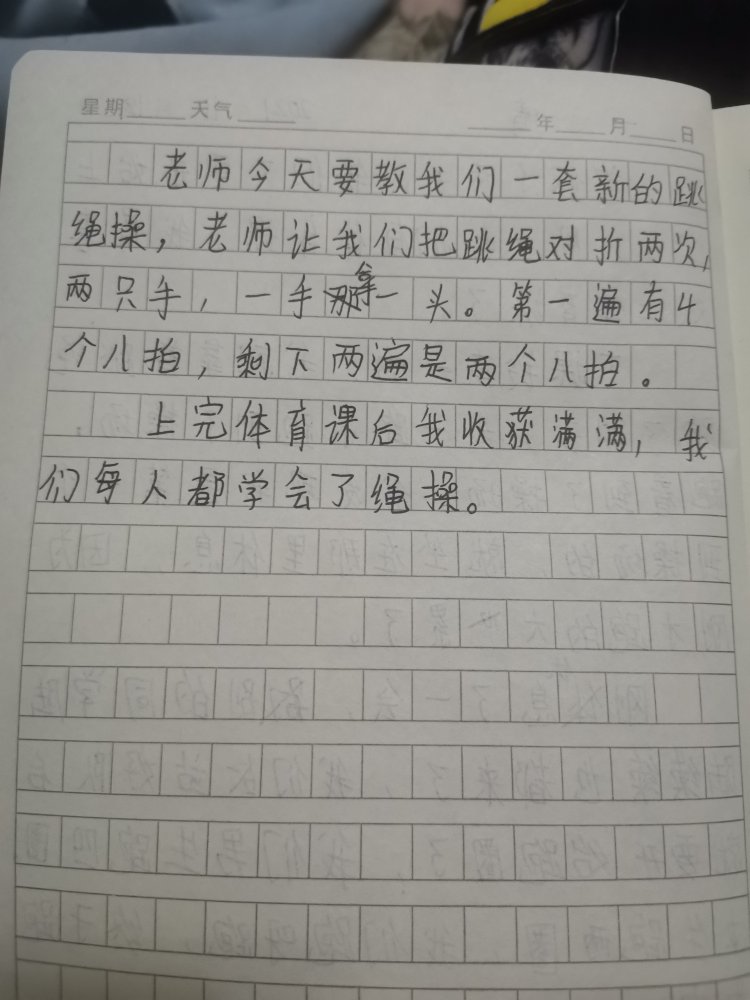 星期 天气 年 月 日
老师今天要教我们一套新的跳
绳操，老师让我们把跳绳对折两次，
两只手，一手拿一头。第一遍有4
个八拍，剩下两遍是两个八拍。
上完体育课后我收获满满，我
们每人都学会了绳操。